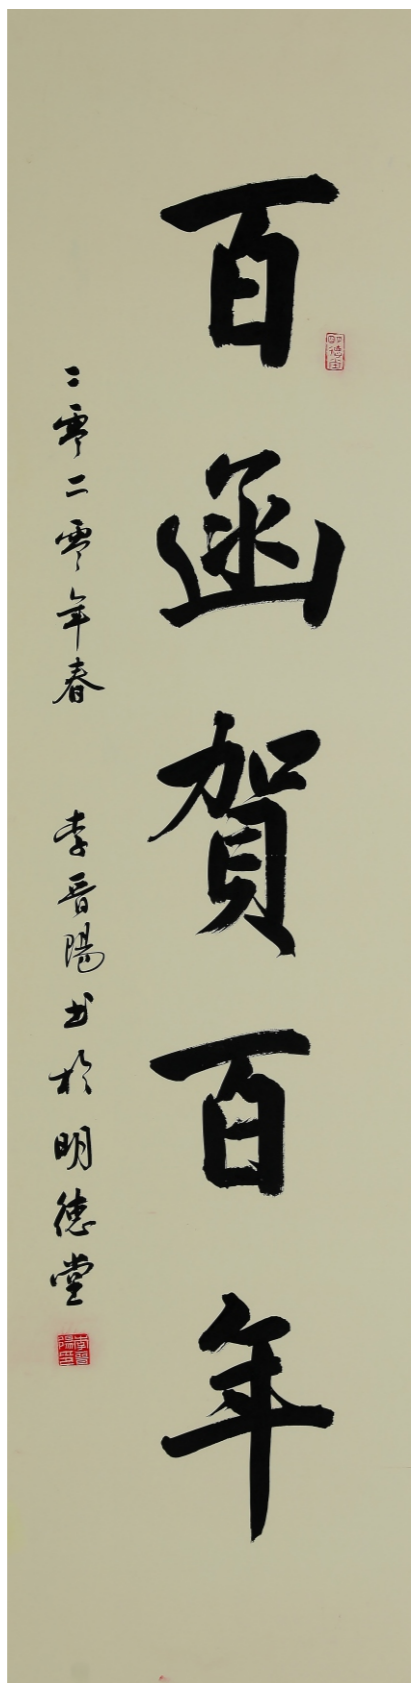 百函賀百年
明德堂
二零二零年春 李晋陽书於明德堂
李晋陽印